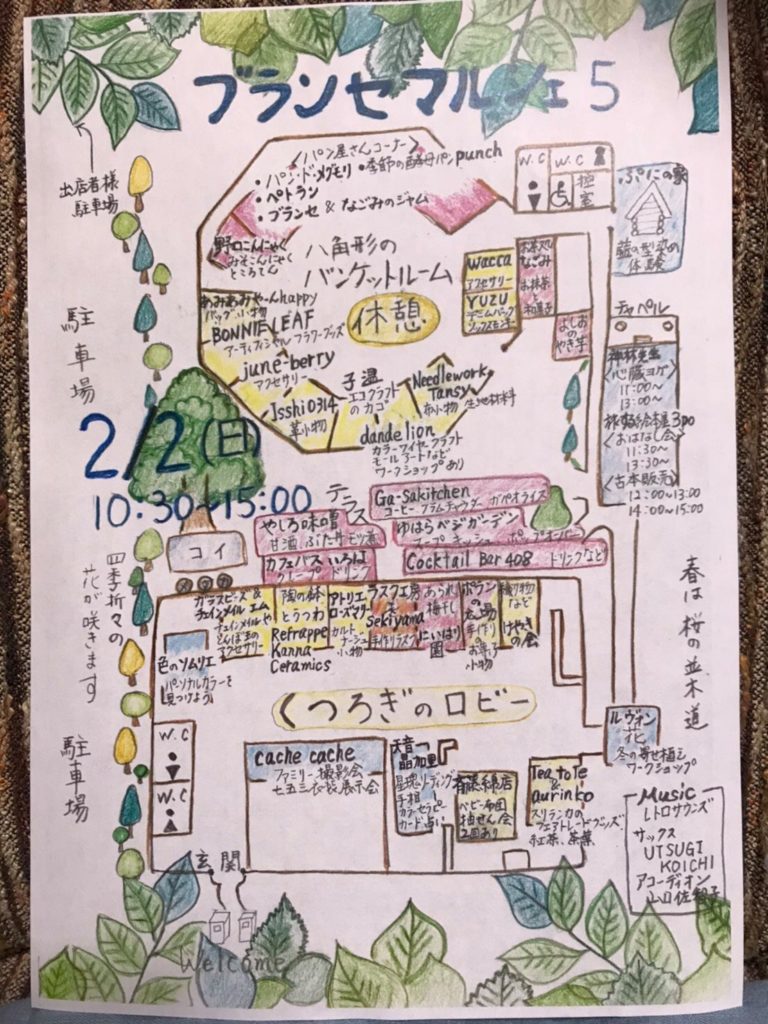 ブランセマルシェ5
出店者様
駐車場
〈パン屋さんコーナー〉
・パン・ド・メグモリ
・季節の酵母パンpunch
・ペトラン
・ブランセ&なごみのジャム
野口こんにゃく
みそこんにゃく
ところてん
八角形の
バンケットルーム
休憩
W.C
W.C
控室
ぷにの家
藍の型染の
体験
wacca
アクセサリー
YUZU
デニムバッグ
お茶処
なごみ
お抹茶
と
和菓子
よしお
のやき芋
あみあみやーんhappy
バッグ小物
BONNIE LEAF
アーティフィシャルフラワーグッズ
june-berry
アクセサリー
Isshi0314
革小物
子温
エコクラフト
のカゴ
dandelion
カラーワイヤークラフト
モールアートなど
ワークショップあり
Needlework
Tansy
布小物 生地材料
チャペル
〈心臓ヨガ〉
11:00~
13:00~
〈おはなし会〉
11:30~
13:30~
〈古本販売〉
12:00~13:00
14:00~15:00
駐車場
2/2(日)
10:30~15:00
テラス
Ga-Sakitchen
コーヒー クラムチャウダー ガパオライス
やしろ味噌
甘酒 ぶた汁 モツ煮
ゆはらベジガーデン
スープ キッシュ ポップオーバー
カフェバスいろは
クレープ ドリンク
Cocktail Bar 408
ドリンクなど
コイ
四季折々の
花が咲きます
春は桜の並木道
ガラスビーズ&
チェインメイル エム
チェインメイルや
とんぼ玉の
アクセサリー
陶の鉢
とうつわ
Refrappe
Kanna
Ceramics
アトリエ
ローズマリー
カルト
ナージュ
小物
ラスク工房
Sekiyama
手作りラスク
あられ
梅干し
にいはり
園
ポラン
の広場
手作り
お菓子
小物
織り物
など
けやきの会
色のソムリエ
パーソナルカラーを
見つけよう
くつろぎのロビー
W.C
W.C
cache cache
ファミリー撮影会
七五三衣装展示会
天音
晶加里
星魂リーディング
手相
カラーセラピー
カード占い
斉藤綿店
ベビー布団
抽せん会
2回あり
Tea toTe
&
aurinko
スリランカの
フェアトレードグッズ
紅茶、茶葉
ルヴォン
花
冬の寄せ植え
ワークショップ
駐車場
Music
レトロサウンズ
サックス
UTSUGI
KOICHI
アコーディオン
玄関
Welcome